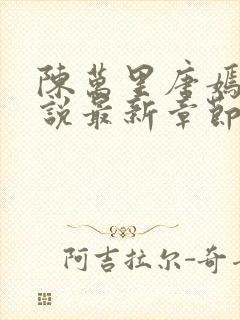 陳萬里唐嫣
說最新章節
阿吉拉尔-奇